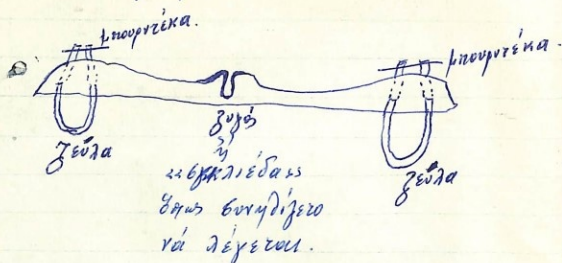 μπουρντέκα.
μπουρντέκα.
ζεύλα
ζυγός
ζεύλα
ἤ
ὅπως συνηθίζετο
νά λέγεται.